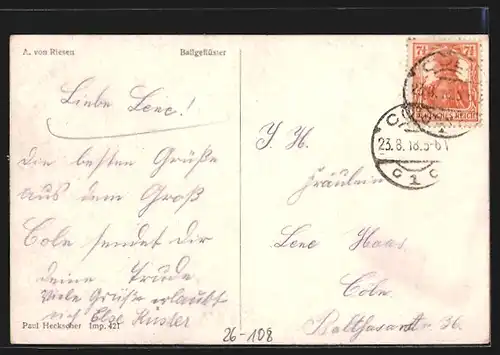 A. von Riesen
Ballgeflüster
Liebe Lene!
die besten Grüße
aus dem Groß
Cöln sendet dir
deine Trude
Viele Grüße erlaubt
sich Else Küster
Paul Heckscher Imp. 421
26-108
7½ 7½
DEUTSCHES REICH
CÖLN
23.8.18.5-6
C 1 C
Fräulein
Lene Haas
Cöln
Balthasarstr 36.